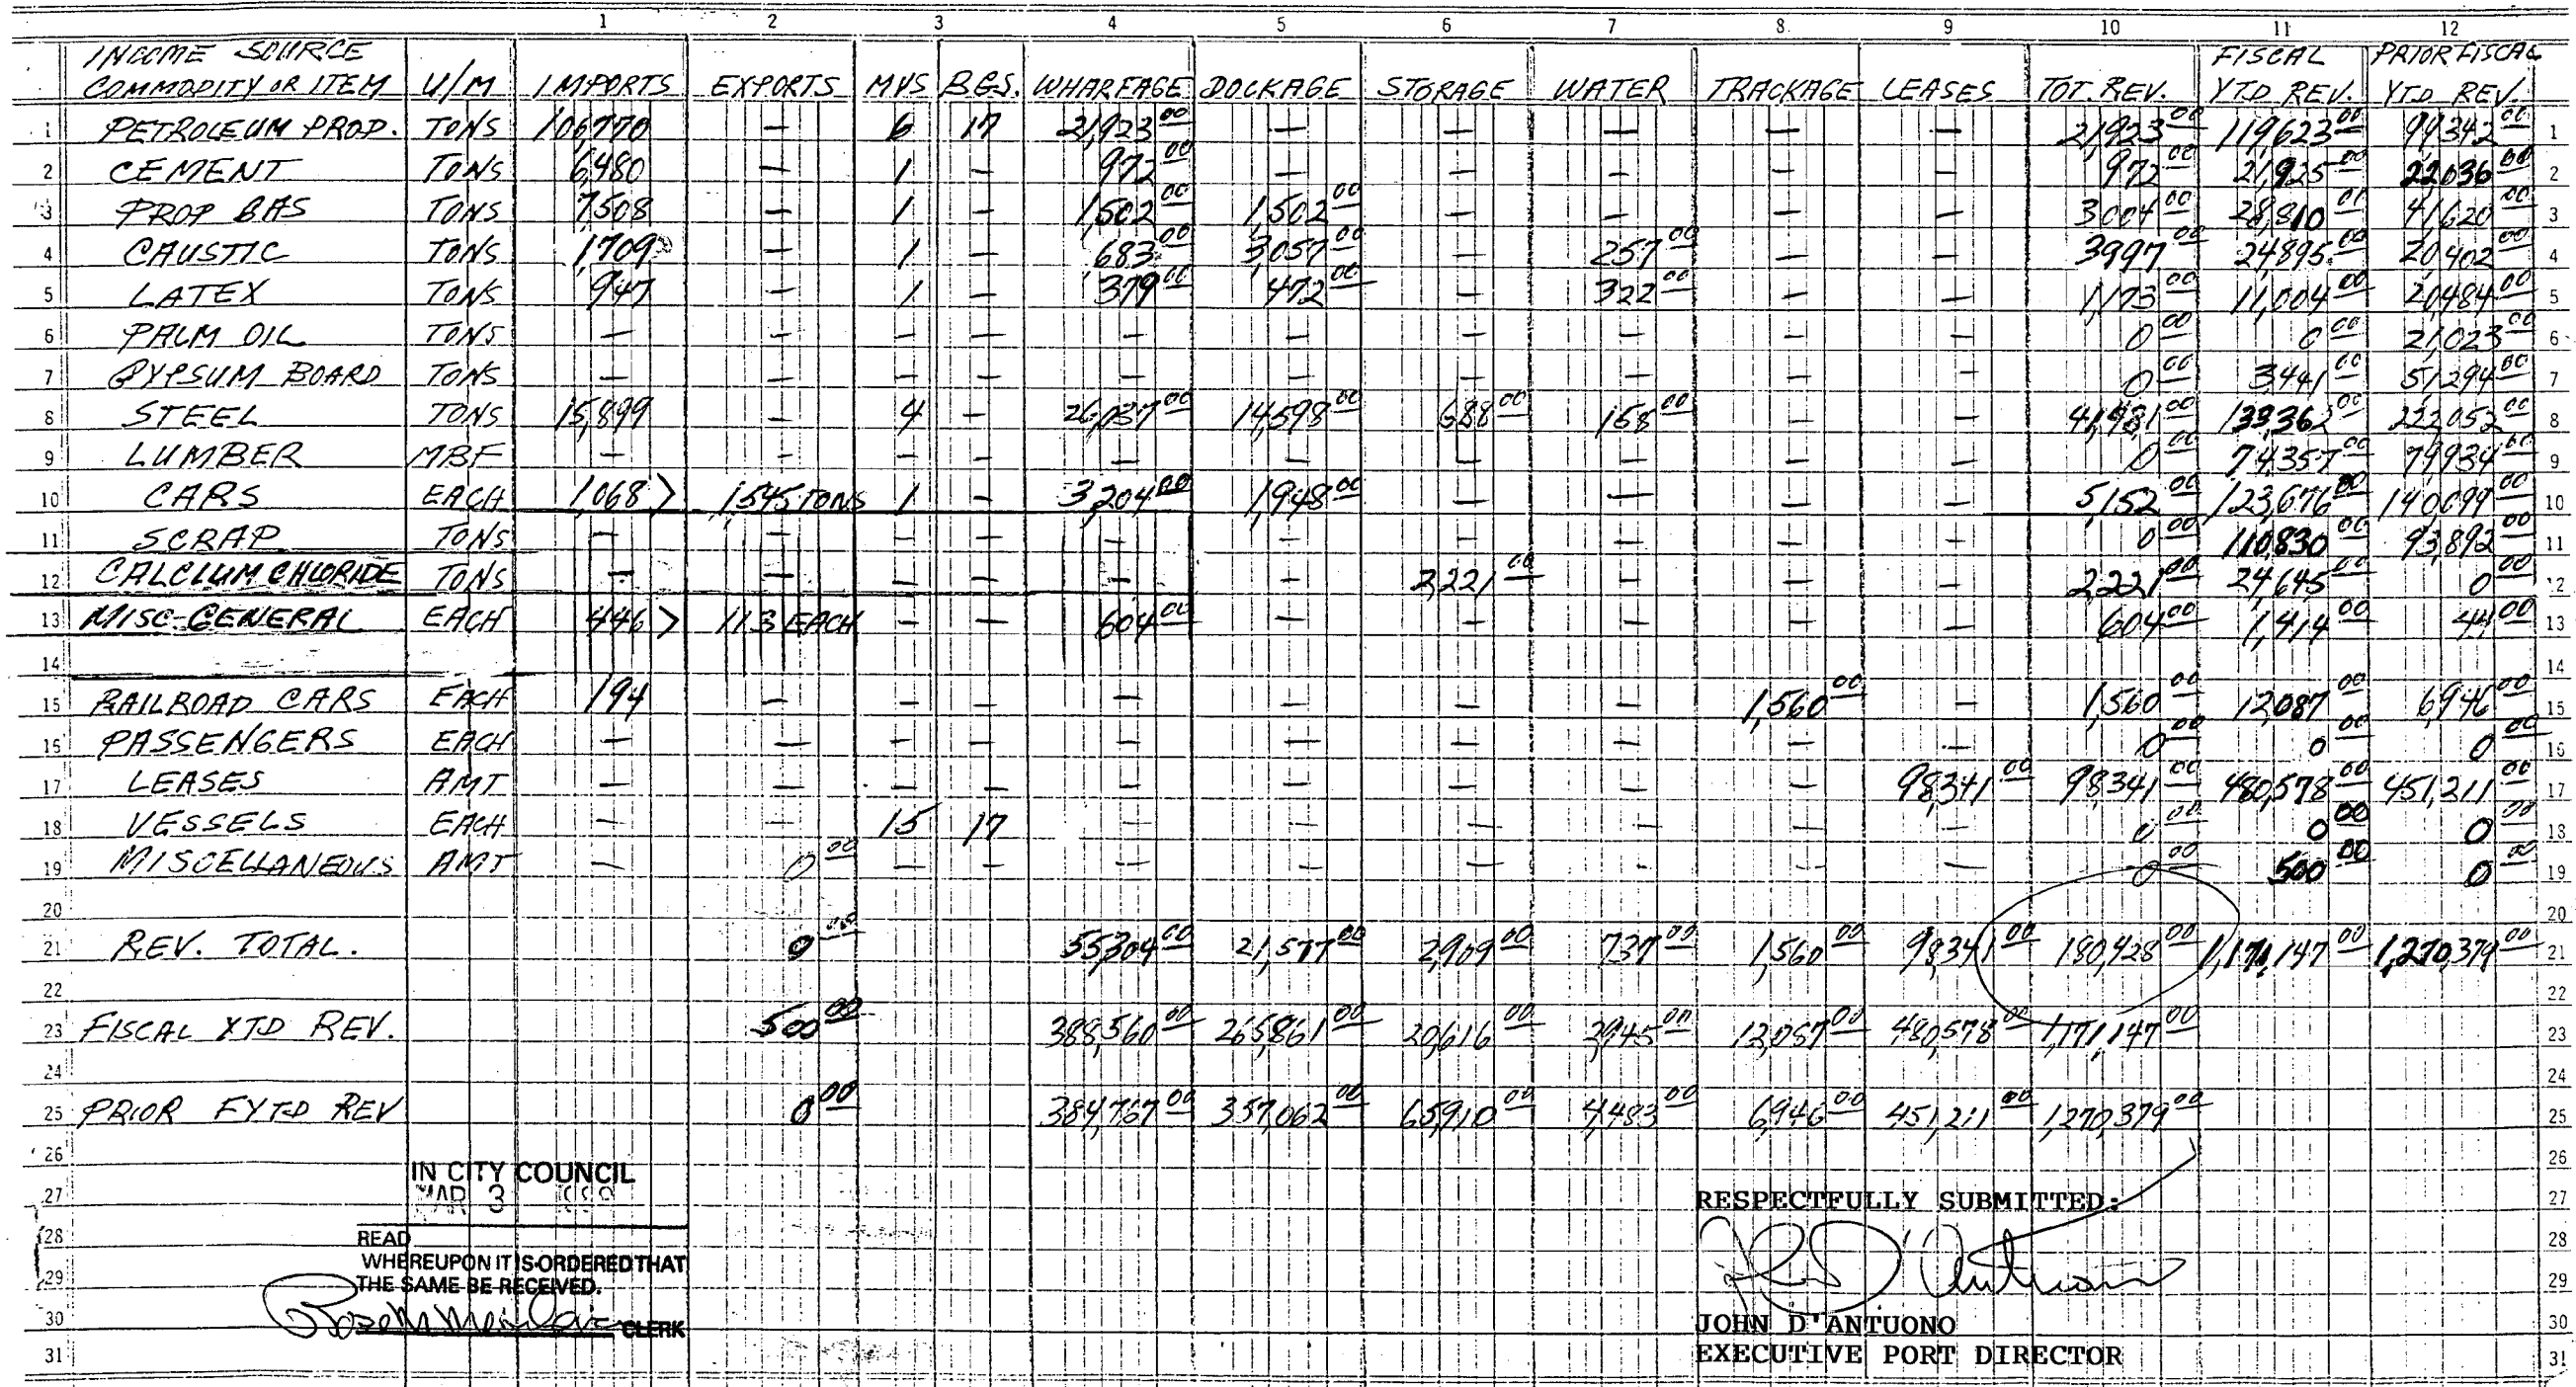 1 2 3 4 5 6 7 8 9 10 11 12
INCOME SOURCE FISCAL PRIOR FISCAL
COMMODITY OR ITEM U/M IMPORTS EXPORTS MVS BGS. WHARFAGE DOCKAGE STORAGE WATER TRACKAGE LEASES TOT. REV. YTD REV. YTD REV.
1 PETROLEUM PROD. TONS 106,770 — 6 17 21,923 00 — — — — — 21,923 00 119,623 00 99,342 00 1
2 CEMENT TONS 6,480 — 1 — 972 00 — — — — — 972 00 21,925 00 22,036 00 2
3 PROP GAS TONS 7,508 — 1 — 1,502 00 1,502 00 — — — — 3,004 00 28,810 00 41,620 00 3
4 CAUSTIC TONS 1,709 — 1 — 683 00 3,057 00 — 257 00 — — 3997 00 24,895 00 20,402 00 4
5 LATEX TONS 947 — 1 — 379 00 472 00 — 322 00 — — 1,173 00 11,004 00 20,484 00 5
6 PALM OIL TONS — — — — — — — — — — 0 00 0 00 21,023 00 6
7 GYPSUM BOARD TONS — — — — — — — — — — 0 00 3,441 00 51,294 00 7
8 STEEL TONS 15,899 — 4 — 26,037 00 14,598 00 688 00 158 00 — — 41,481 00 133,362 00 222,052 00 8
9 LUMBER MBF — — — — — — — — — — 0 00 74,357 00 79,934 00 9
10 CARS EACH 1,068 > 1,545 TONS 1 — 3,204 00 1,948 00 — — — — 5,152 00 123,676 00 140,099 00 10
11 SCRAP TONS — — — — — — — — — — 0 00 110,830 00 93,892 00 11
12 CALCIUM CHLORIDE TONS — — — — — — 2,221 00 — — — 2,221 00 24,645 00 0 00 12
13 MISC-GENERAL EACH 446 > 113 EACH — — 604 00 — — — — — 604 00 1,414 00 44 00 13
14 14
15 RAILROAD CARS EACH 194 — — — — — — — 1,560 00 — 1,560 00 12,087 00 6,946 00 15
16 PASSENGERS EACH — — — — — — — — — — 0 00 0 00 0 00 16
17 LEASES AMT — — — — — — — — — 98,341 00 98,341 00 480,578 00 451,211 00 17
18 VESSELS EACH — — 15 17 — — — — — — 0 00 0 00 0 00 18
19 MISCELLANEOUS AMT — 0 00 — — — — — — — — 0 00 500 00 0 00 19
20 20
21 REV. TOTAL. 0 00 55,304 00 21,577 00 2,909 00 737 00 1,560 00 98,341 00 180,428 00 1,171,147 00 1,270,379 00 21
22 22
23 FISCAL YTD REV. 500 00 388,560 00 265,861 00 20,616 00 2,945 00 12,087 00 480,578 00 1,171,147 00 23
24 24
25 PRIOR FYTD REV 0 00 384,767 00 357,062 00 65,910 00 4,483 00 6,946 00 451,211 00 1,270,379 00 25
26 26
IN CITY COUNCIL
27 MAR 3 27
RESPECTFULLY SUBMITTED:
28 READ 28
WHEREUPON IT IS ORDERED THAT
29 THE SAME BE RECEIVED. 29
30 CLERK 30
JOHN D'ANTUONO
31 EXECUTIVE PORT DIRECTOR 31